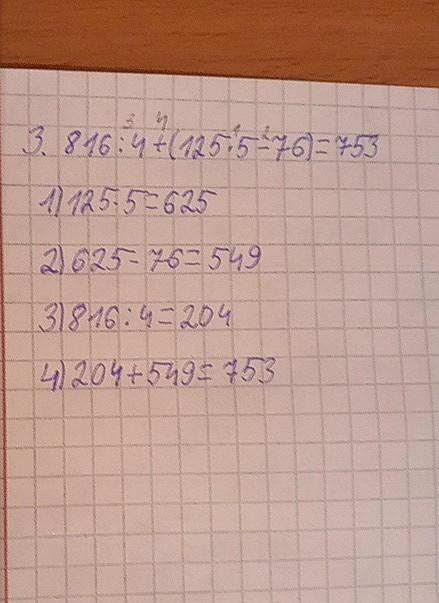 3 4 1 2
3. 816:4+(125·5-76)=753
1) 125·5=625
2) 625-76=549
3) 816:4=204
4) 204+549=753